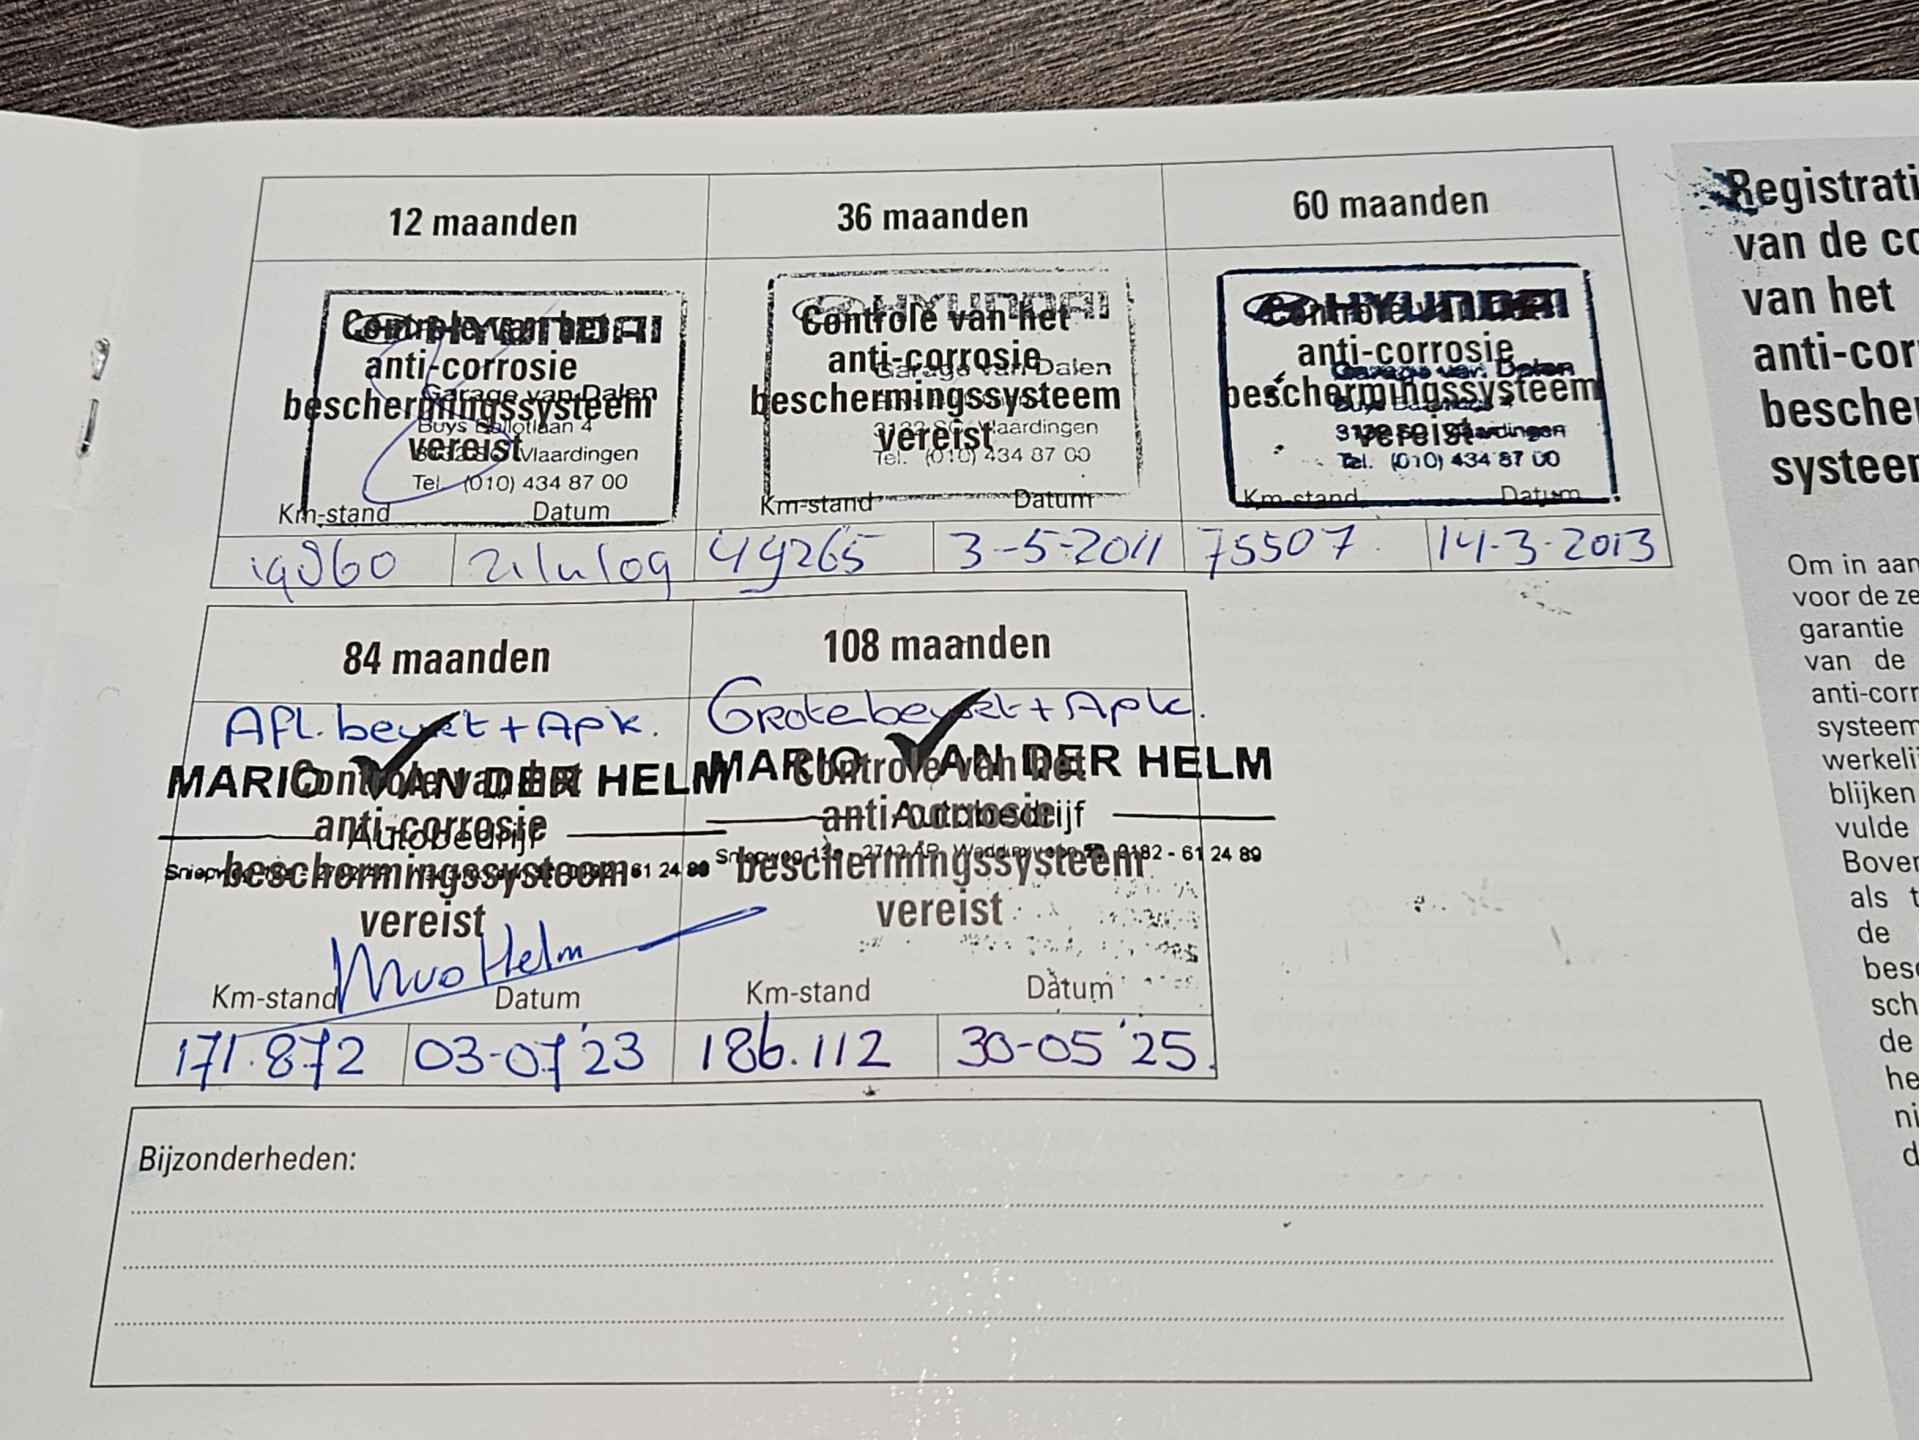 12 maanden
36 maanden
60 maanden
Controle van het
anti-corrosie
beschermingssysteem
vereist
HYUNDAI
Garage van Dalen
Buys Ballotlaan 4
Vlaardingen
Tel. (010) 434 87 00
Km-stand
Datum
Controle van het
anti-corrosie
beschermingssysteem
vereist
HYUNDAI
Garage van Dalen
Vlaardingen
Tel. (010) 434 87 00
Km-stand
Datum
Controle van het
anti-corrosie
beschermingssysteem
vereist
HYUNDAI
Garage van Dalen
Vlaardingen
Tel. (010) 434 87 00
Km-stand
Datum
49265
3-5-2011
75507
14-3-2013
84 maanden
108 maanden
Afl. beurt + Apk.
MARIO VAN DER HELM
Autobedrijf
Controle van het
anti-corrosie
beschermingssysteem
vereist
Km-stand
Datum
171.872
03-07'23
Grote beurt + Apk.
MARIO VAN DER HELM
Autobedrijf
0182 - 61 24 89
Controle van het
anti-corrosie
beschermingssysteem
vereist
Km-stand
Datum
186.112
30-05'25.
Bijzonderheden:
Registrati
van de co
van het
anti-cor
bescher
systeem
Om in aan
voor de ze
garantie
van de
anti-corr
systeem
werkelij
blijken
vulde
Boven
als t
de
besc
sch
de
he
ni
d